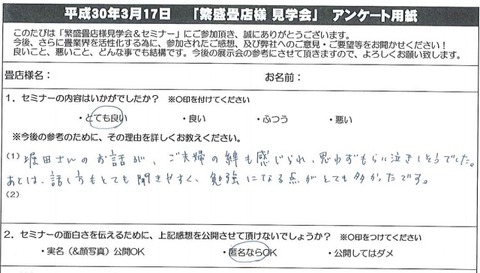 平成30年3月17日 「繁盛畳店様 見学会」 アンケート用紙
このたびは「繁盛畳店様見学会&セミナー」にご参加頂き、誠にありがとうございます。
今後、さらに畳業界を活性化する為に、参加されたご感想、及び弊社へのご意見・ご要望等をお聞かせください！
良いこと、悪いこと、どんな事でも結構です。今後の展示会の参考にさせて頂きますので、よろしくお願い致します。
畳店様名： お名前：
1．セミナーの内容はいかがでしたか？ ※○印を付けてください
・とても良い ・良い ・ふつう ・悪い
※今後の参考のために、その理由を詳しくお教えください。
(1) 堀田さんのお話が、ご夫婦の絆も感じられ、思わずもらい泣きしそうでした。
あとは、話し方もとても聞きやすく、勉強になる点がとても多かったです。
(2)
2．セミナーの面白さを伝えるために、上記感想を公開させて頂けないでしょうか？ ※○印をつけてください
・実名（&顔写真）公開OK ・匿名ならOK ・公開してはダメ